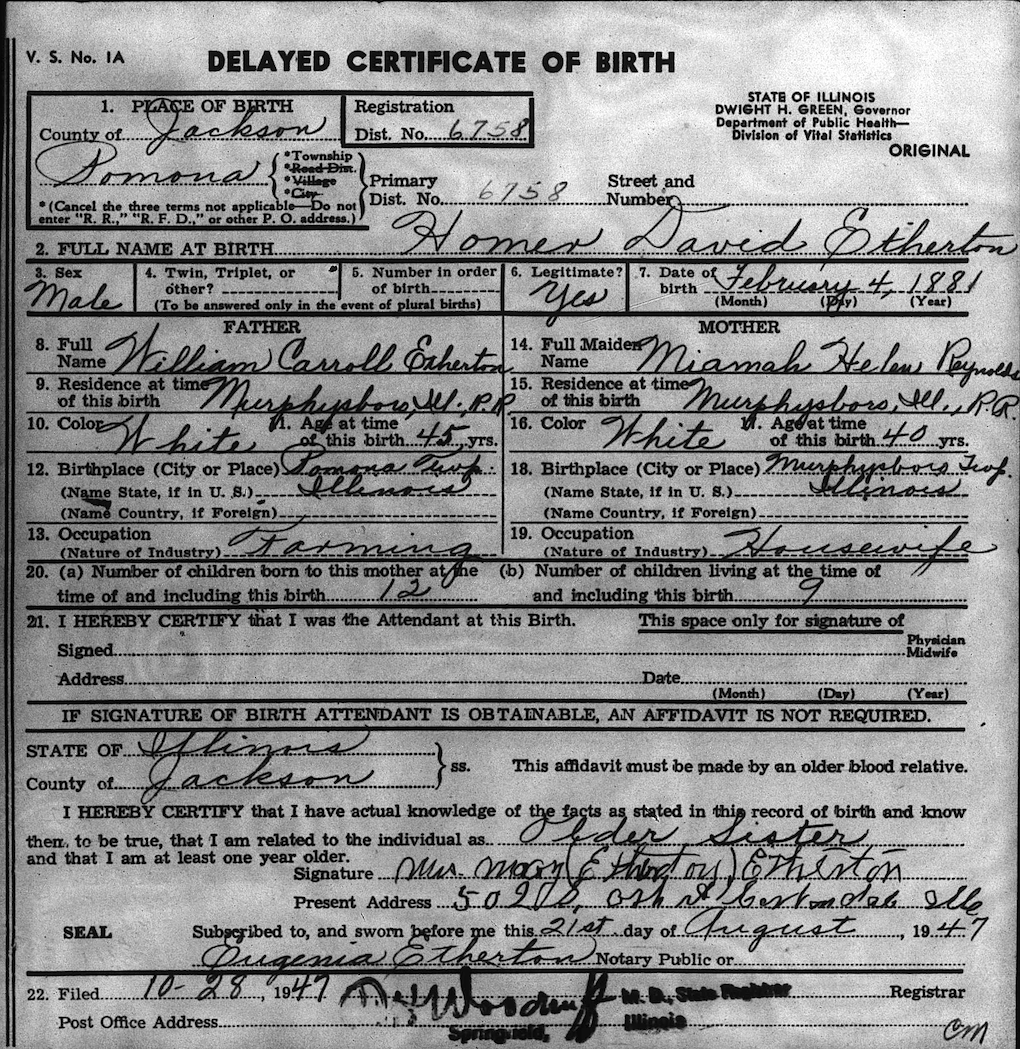 V. S. No. 1A
DELAYED CERTIFICATE OF BIRTH
STATE OF ILLINOIS
DWIGHT H. GREEN, Governor
Department of Public Health—
Division of Vital Statistics
ORIGINAL
1. PLACE OF BIRTH
County of Jackson
Registration
Dist. No. 6758
Pomona
*Township
*Road Dist.
*Village
*City
*(Cancel the three terms not applicable—Do not
enter "R. R.," "R. F. D.," or other P. O. address.)
Primary
Dist. No. 6758
Street and
Number
2. FULL NAME AT BIRTH Homer David Etherton
3. Sex
Male
4. Twin, Triplet, or
other?
5. Number in order
of birth
(To be answered only in the event of plural births)
6. Legitimate?
Yes
7. Date of
birth February 4, 1881
(Month) (Day) (Year)
FATHER
8. Full
Name William Carroll Etherton
9. Residence at time
of this birth Murphysboro, Ill., R.R
10. Color White
11. Age at time
of this birth 45 yrs.
12. Birthplace (City or Place) Pomona Twp.
(Name State, if in U. S.) Illinois
(Name Country, if Foreign)
13. Occupation
(Nature of Industry) Farming
MOTHER
14. Full Maiden
Name Miamah Helen Reynolds
15. Residence at time
of this birth Murphysboro, Ill., R.R.
16. Color White
17. Age at time
of this birth 40 yrs.
18. Birthplace (City or Place) Murphysboro Twp.
(Name State, if in U. S.) Illinois
(Name Country, if Foreign)
19. Occupation
(Nature of Industry) Housewife
20. (a) Number of children born to this mother at the
time of and including this birth 12
(b) Number of children living at the time of
and including this birth 9
21. I HEREBY CERTIFY that I was the Attendant at this Birth.
This space only for signature of
Signed
Physician
Midwife
Address Date
(Month) (Day) (Year)
IF SIGNATURE OF BIRTH ATTENDANT IS OBTAINABLE, AN AFFIDAVIT IS NOT REQUIRED.
STATE OF Illinois
County of Jackson
ss.
This affidavit must be made by an older blood relative.
I HEREBY CERTIFY that I have actual knowledge of the facts as stated in this record of birth and know
them to be true, that I am related to the individual as Older Sister
and that I am at least one year older.
Signature Mrs. Mary (Etherton) Etherton
Present Address 502 S. Ash St Carbondale Ills
SEAL
Subscribed to, and sworn before me this 21st day of August, 1947
Eugenia Etherton Notary Public or
22. Filed 10-28, 1947 Woodruff M. D., State Registrar Registrar
Post Office Address Springfield, Illinois
CM